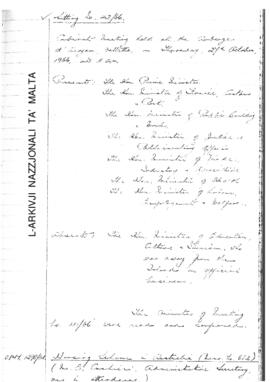 Sitting No. 42/66.
Cabinet Meeting held at the Auberge
d'Aragon Valletta, on Thursday, 27th October,
1966, at 9 am.
Present: The Hon Prime Minister
The Hon Minister of Finance, Customs
& Port
The Hon Minister of Public Building
& Works
The Hon Minister of Justice &
Affairs
The Hon Minister of Trade,
Industry & Agriculture
The Hon. Minister of Health
The Hon Minister of Labour,
Employment & Welfare.
Absent: The Hon Minister of Education,
Culture & Tourism, who
was away from these
Islands on official
business.
The Minutes of Meeting
No 41/66 were read and confirmed.
Housing Scheme in Australia
Administrative Secretary
was in attendance)
L-ARKIVJI NAZZJONALI TA' MALTA